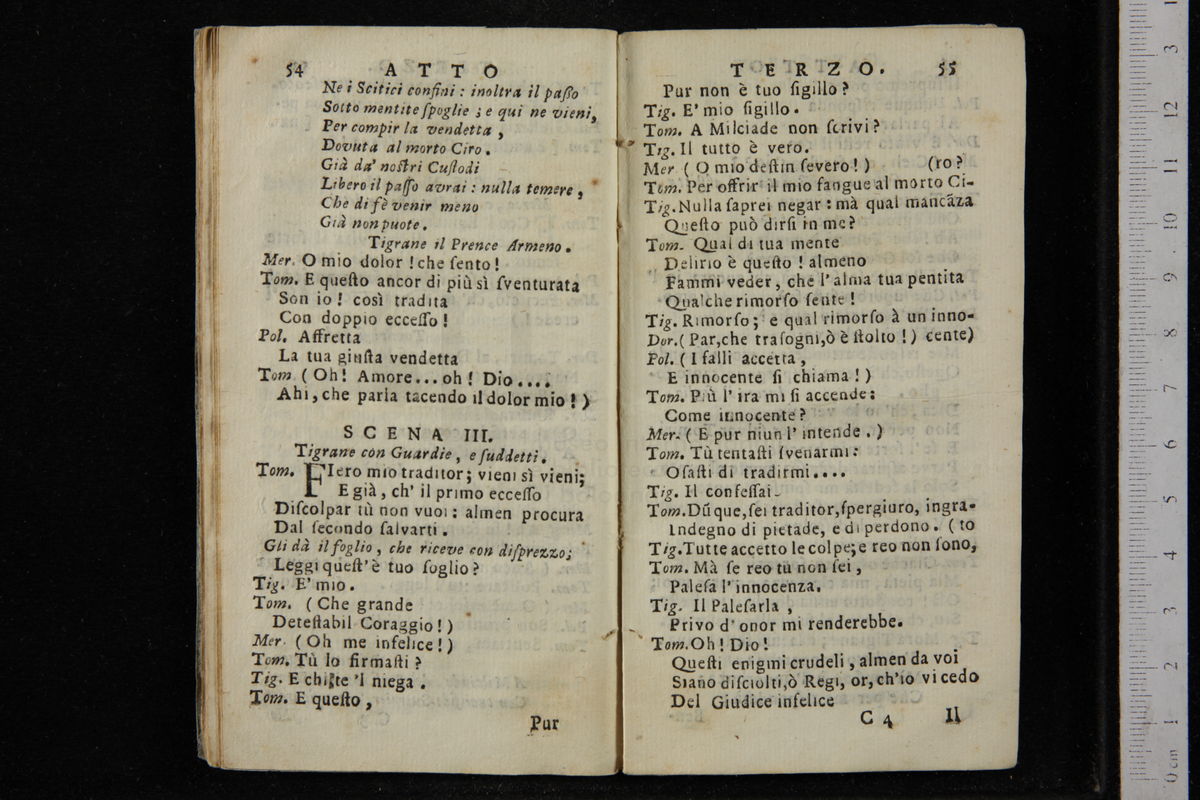 54 ATTO
Ne i Scitici confini : inoltra il paßo
Sotto mentite ſpoglie ; e qui ne vieni,
Per compir la vendetta ,
Dovuta al morto Ciro .
Già da' noſtri Cuſtodi
Libero il paſſo avrai : nulla temere ,
Che di fè venir meno
Già non puote .
Tigrane il Prence Armeno .
Mer. O mio dolor ! che ſento !
Tom. E queſto ancor di più sì ſventurata
Son io ! così tradita
Con doppio ecceſſo !
Pol. Affretta
La tua giuſta vendetta
Tom ( Oh! Amore... oh ! Dio ....
Ahi, che parla tacendo il dolor mio ! )
SCENA III.
Tigrane con Guardie , e ſuddetti .
Tom. FIero mio traditor ; vieni sì vieni;
E già , ch' il primo ecceſſo
Diſcolpar tù non vuoi : almen procura
Dal ſecondo ſalvarti .
Gli dà il foglio , che riceve con diſprezzo;
Leggi queſt' è tuo foglio ?
Tig. E' mio .
Tom. ( Che grande
Deteſtabil Coraggio ! )
Mer. ( Oh me infelice ! )
Tom. Tù lo firmaſti ?
Tig. E chi te 'l niega .
Tom. E queſto ,
Pur
TERZO. 55
Pur non è tuo ſigillo ?
Tig. E' mio ſigillo .
Tom. A Milciade non ſcrivi ?
Tig. Il tutto è vero .
Mer ( O mio deſtin ſevero ! ) (ro ?
Tom. Per offrir il mio ſangue al morto Ci-
Tig. Nulla ſaprei negar : mà qual mancãza
Queſto può dirſi in me ?
Tom. Qual di tua mente
Delirio è queſto ! almeno
Fammi veder , che l' alma tua pentita
Qualche rimorſo ſente !
Tig. Rimorſo ; e qual rimorſo à un inno-
Dor. ( Par, che traſogni, ò è ſtolto ! ) cente)
Pol. ( I falli accetta ,
E innocente ſi chiama ! )
Tom. Più l' ira mi ſi accende :
Come innocente ?
Mer. ( E pur niun l' intende . )
Tom. Tù tentaſti ſvenarmi :
Oſaſti di tradirmi ....
Tig. Il confeſſai .
Tom. Dũque, ſei traditor, ſpergiuro, ingra-
Indegno di pietade, e di perdono . ( to
Tig. Tutte accetto le colpe; e reo non ſono,
Tom. Mà ſe reo tù non ſei ,
Paleſa l' innocenza .
Tig. Il Paleſarla ,
Privo d' onor mi renderebbe .
Tom. Oh ! Dio !
Queſti enigmi crudeli , almen da voi
Siano diſciolti, ò Regi, or, ch'io vi cedo
Del Giudice infelice
C 4 Il